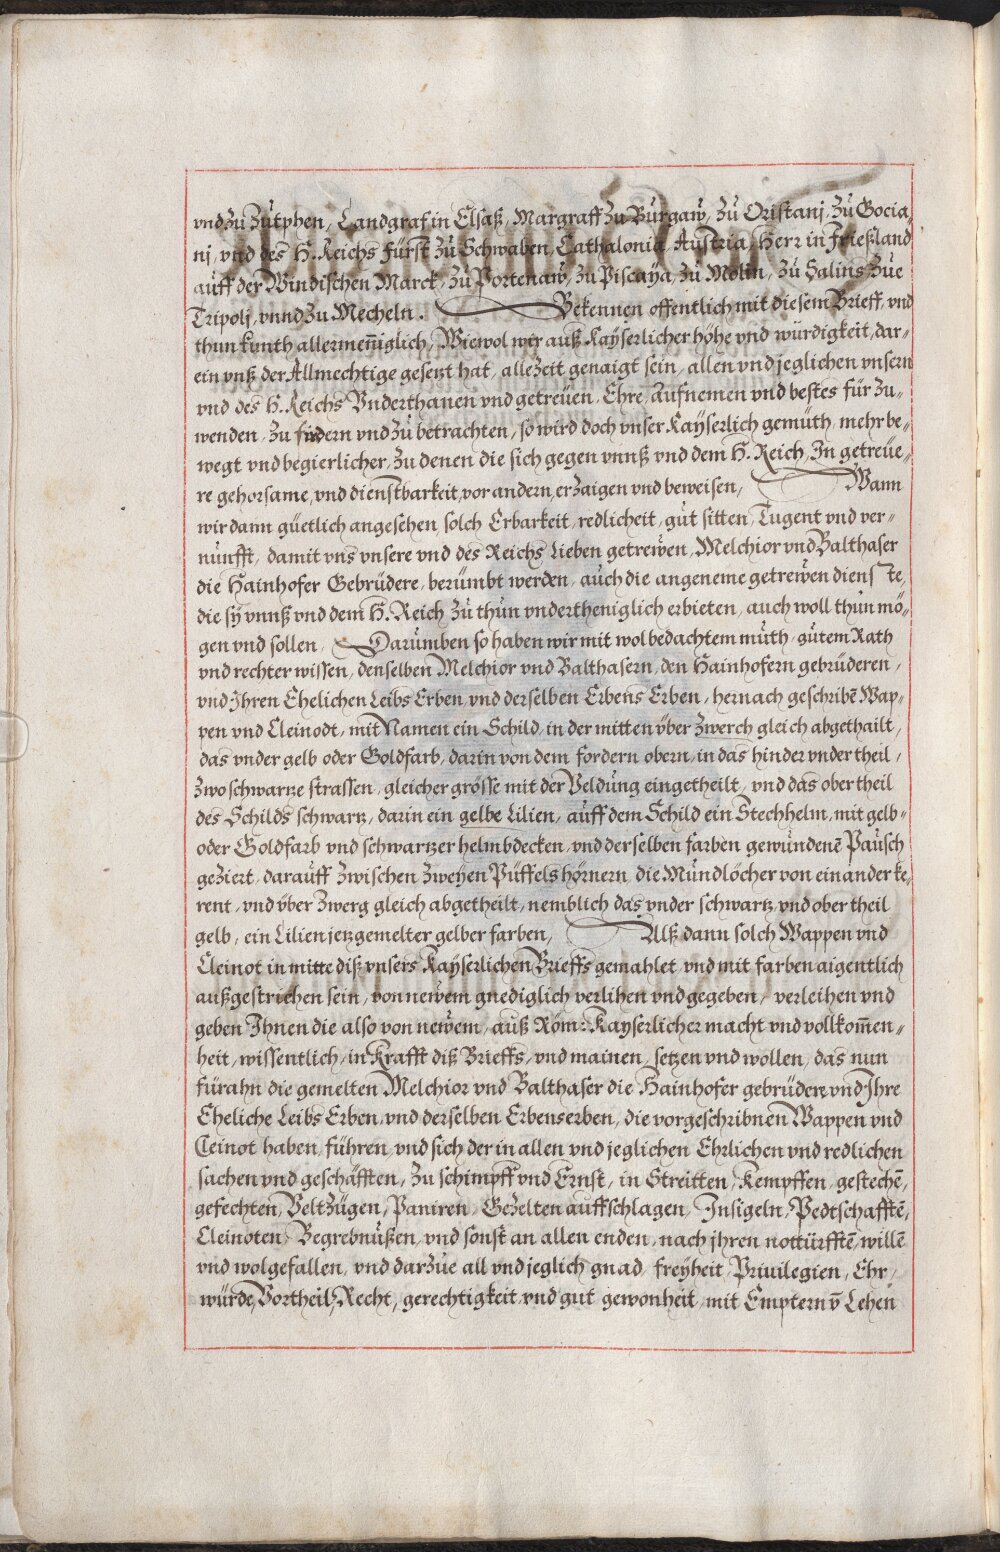 vnd zu Zütphen, Landgraf in Elsaß, Margraff zu Burgaw, zü Oristanj, zü Gocia„
nj, vnd des H. Reichs Fürst zü Schwaben, Cathalonia, Austria, Herr in Frießland
auff der Windischen Marck, zü Portenaw, zu Piscaÿa, zü Molin, zü Salins züe
Tripolj, vnnd zu Mecheln. Bekennen offentlich mit diesem Brieff, vnd
thun kunth allermeñiglich, Wiewol wir auß Kaÿserlicher höhe vnd würdigkeit, dar„
ein vnß der Allmechtige gesetzt hat, allezeit genaigt sein, allen vnd jeglichen vnsern
vnd des H. Reichs Vnderthanen vnd getreüen, Ehre, Aufnemen vnd bestes für zu„
wenden, zu fürdern vnd zü betrachten, so wird doch vnser Kaÿserlich gemüth, mehr be„
wegt vnd begierlicher, zu denen die sich gegen vnnß vnd dem H. Reich, In getreüe„
re gehorsame, vnd dienstbarkeit, vor andern, erzaigen vnd beweisen, Wann
wir dann güetlich angesehen, solch Erbarkeit, redlicheit, güt sitten, Tugent vnd ver„
nünfft, damit vns vnsere vnd des Reichs Lieben getrewen, Melchior vnd Balthaser
die Hainhofer Gebrüdere, berümbt werden, auch die angeneme getrewen dienste,
die sÿ vnnß vnd dem H. Reich zü thün vndertheniglich erbieten, auch woll thün mö„
gen vnd sollen, Darümben so haben wir mit wolbedachtem müth, gütem Rath
vnd rechter wissen, denselben Melchior vnd Balthasern, den Hainhofern gebrüderen,
vnd Ihren Ehelichen Leibs Erben, vnd derselben Erbens Erben, hernach geschribē Wap„
pen vnd Cleinodt, mit Namen ein Schild, in der mitten über Zwerch gleich abgethailt,
das vnder gelb oder Goldfarb, darin von dem fordern obern, in das hinder vndertheil,
zwo schwarze strassen, gleicher grösse mit der Veldüng eingetheilt, vnd das obertheil
des Schilds schwartz, darin ein gelbe Lilien, aüff dem Schild ein Stechhelm, mit gelb„
oder Goldfarb vnd schwartzer helmbdecken, vnd derselben farben gewündenē Paüsch
geziert, daraüff zwischen zweÿen Püffelshörnern, die Mündlöcher von einander ke„
rent, vnd über Zwerg gleich abgetheilt, nemblich das vnder schwartz vnd obertheil
gelb, ein Lilien jetzgemelter gelber farben, Alß dann solch Wappen vnd
Cleinot in mitte diß vnsers Kaÿserlichen Brieffs gemahlet, vnd mit farben aigentlich
außgestrichen sein, von newem gnediglich verlihen vnd gegeben, verleihen vnd
geben Ihnen die also von newem, auß Röm: Kayserlicher macht vnd vollkom̄en„
heit, wissentlich, in Krafft diß Brieffs, vnd mainen, setzen vnd wollen, das nun
fürahn die gemelten Melchior vnd Balthaser die Hainhofer gebrüdere vnd Ihre
Eheliche Leibs Erben, vnd derselben Erbenserben, die vorgeschribnen Wappen vnd
Cleinot haben, führen, vnd sich der in allen vnd jeglichen Ehrlichen vnd redlichen
sachen vnd geschäfften, zu schimpff vnd Ernst, in Streitten, Kempffen, gestechē,
gefechten, Veltzügen, Paniren, Gezelten auffschlagen, Insigeln, Pedtschafftē,
Cleinoten, Begrebnüßen, vnd sonst an allen enden, nach jhren nottürfftē, willē
vnd wolgefallen, vnd darzüe all vnd jeglich gnad, freÿheit, Priuilegien, Ehr,
würde, Vortheil, Recht, gerechtigkeit, vnd gut gewonheit, mit Emptern vn̄ Lehen